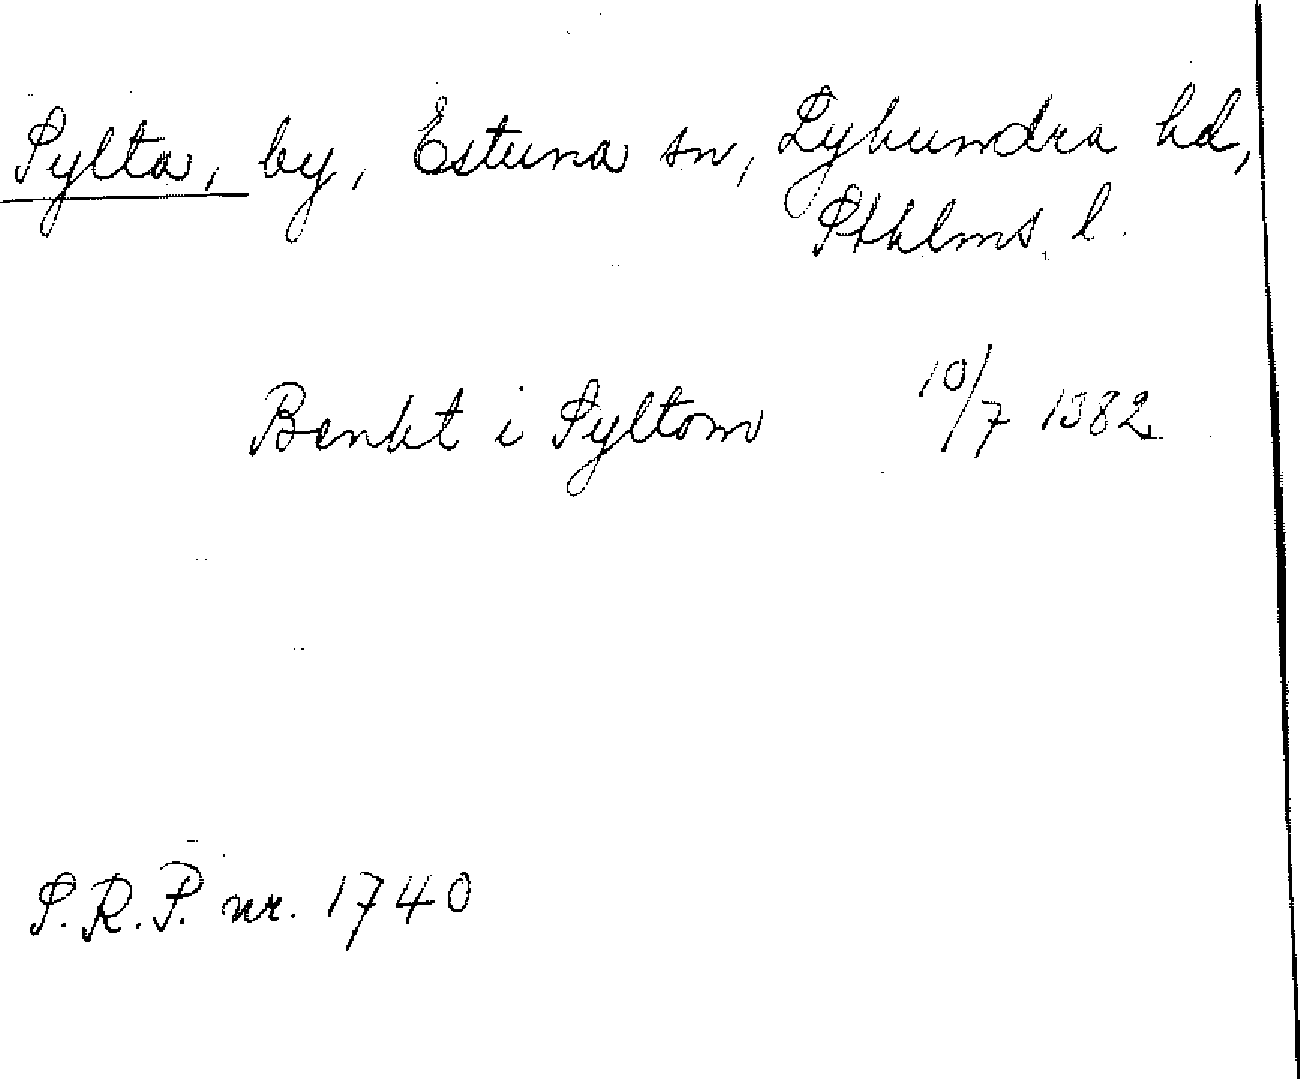 Sylta, by, Estuna sn, Lyhundra hd,
Sthlms l.
Benkt i Syltom 10/7 1382
S.R.P. nr. 1740